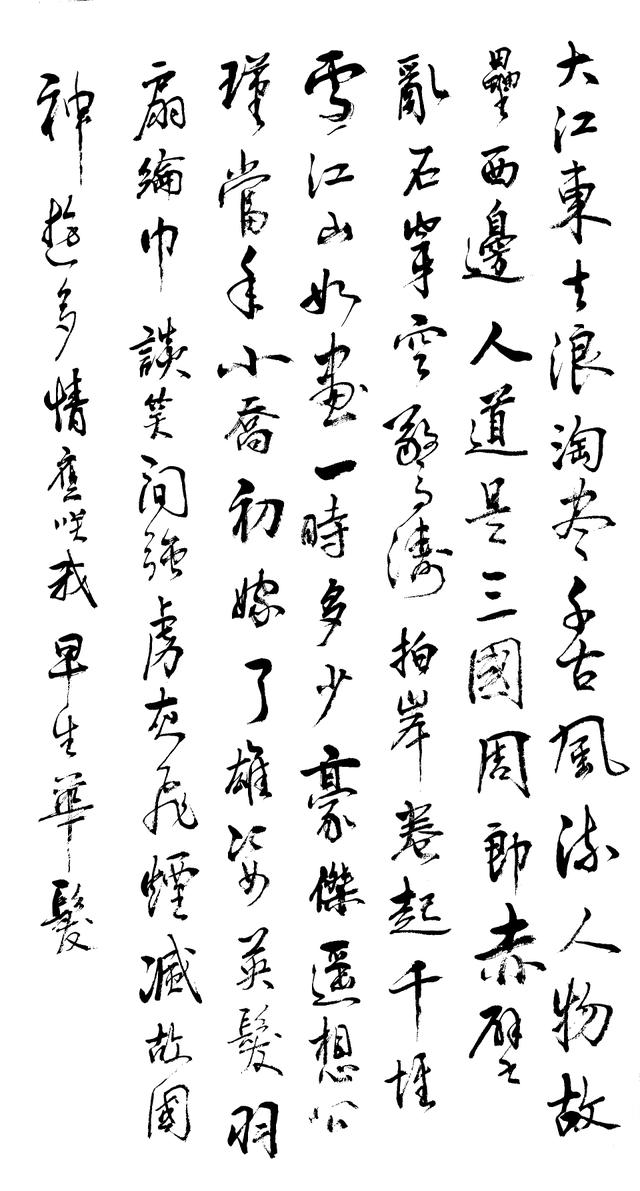 大江東去浪淘尽千古風流人物故
壘西邊人道是三國周郎赤壁
亂石穿空驚濤拍岸卷起千堆
雪江山如畫一時多少豪傑遥想公
瑾當年小喬初嫁了雄姿英髮羽
扇綸巾談笑間強虜灰飛煙滅故國
神遊多情應咲我早生華髮